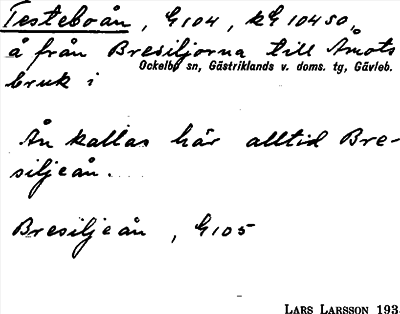 Testeboån, G104, kG 10450,
å från Bresiljorna till Åmots
Ockelbo sn, Gästriklands v. doms. tg, Gävleb.
bruk i
Ån kallas här alltid Bre-
siljeån.
Bresiljeån, G105
LARS LARSSON 193